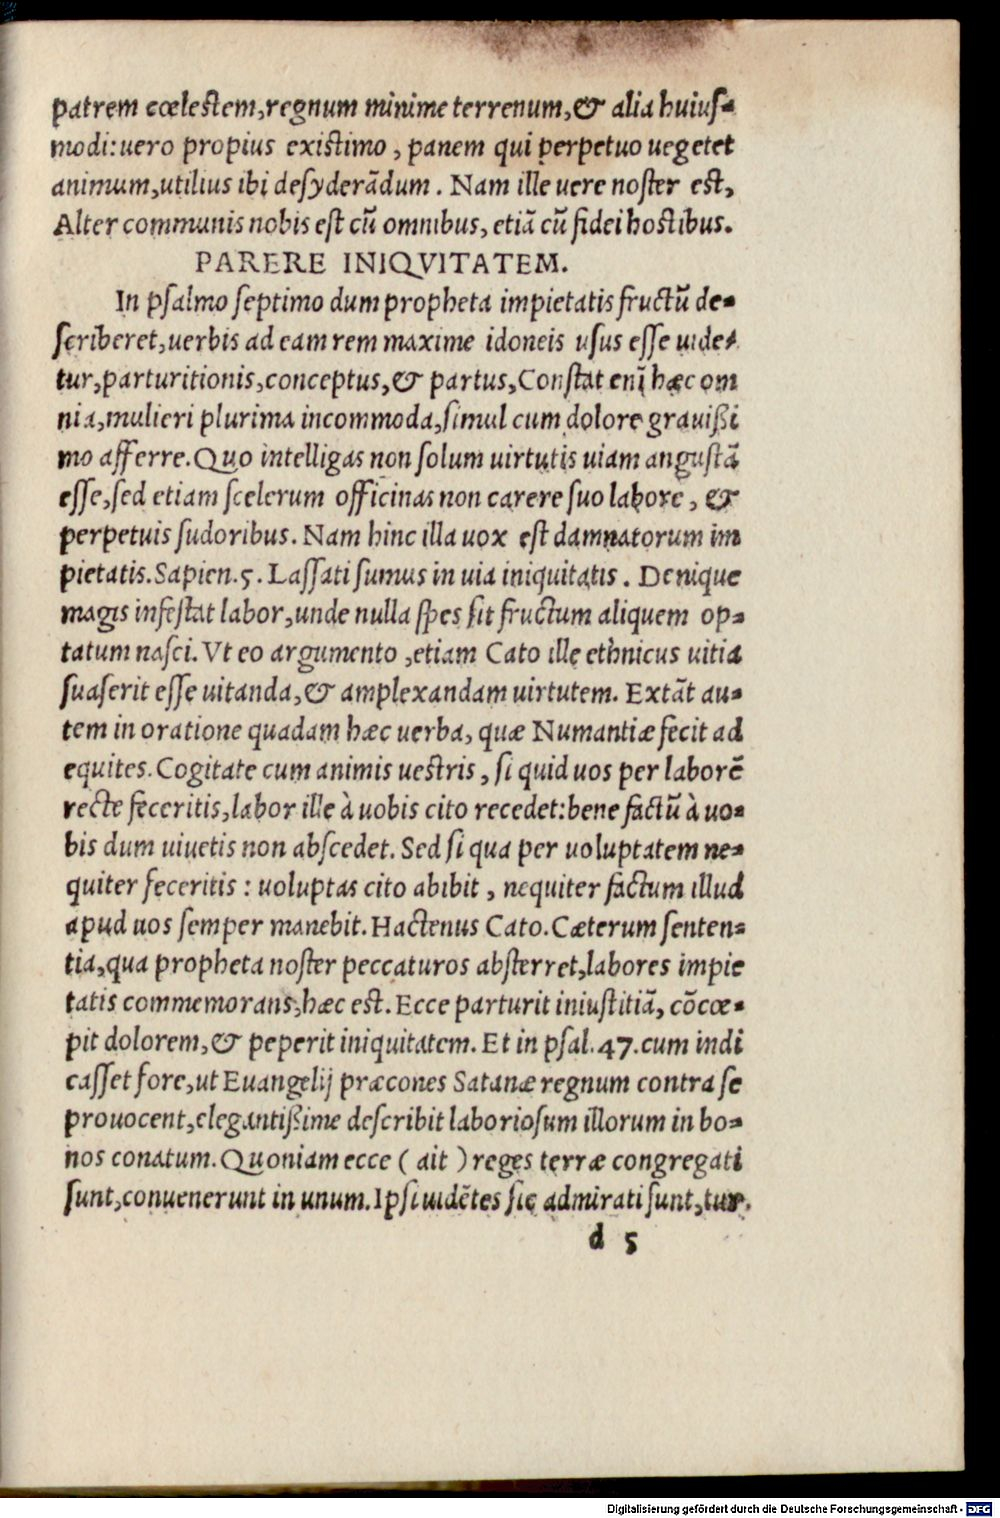 patrem cœlestem, regnum minime terrenum, & alia huius-
modi: uero propius existimo, panem qui perpetuo uegetet
animum, utilius ibi desyderādum. Nam ille uere noster est,
Alter communis nobis est cū omnibus, etiā cū fidei hostibus.
PARERE INIQVITATEM.
In psalmo septimo dum propheta impietatis fructū de-
scriberet, uerbis ad eam rem maxime idoneis usus esse uide-
tur, parturitionis, conceptus, & partus, Constat enī hæc om
nia, mulieri plurima incommoda, simul cum dolore grauißi
mo afferre. Quo intelligas non solum uirtutis uiam angustā
esse, sed etiam scelerum officinas non carere suo labore, &
perpetuis sudoribus. Nam hinc illa uox est damnatorum im
pietatis. Sapien. 5. Lassati sumus in uia iniquitatis. Denique
magis infestat labor, unde nulla spes sit fructum aliquem op-
tatum nasci. Vt eo argumento, etiam Cato ille ethnicus uitia
suaserit esse uitanda, & amplexandam uirtutem. Extāt au-
tem in oratione quadam hæc uerba, quæ Numantiæ fecit ad
equites. Cogitate cum animis uestris, si quid uos per laborē
recte feceritis, labor ille à uobis cito recedet: bene factū à uo-
bis dum uiuetis non abscedet. Sed si qua per uoluptatem ne-
quiter feceritis: uoluptas cito abibit, nequiter factum illud
apud uos semper manebit. Hactenus Cato. Cæterum senten-
tia, qua propheta noster peccaturos absterret, labores impie
tatis commemorans, hæc est. Ecce parturit iniustitiā, cōcœ-
pit dolorem, & peperit iniquitatem. Et in psal. 47. cum indi
casset fore, ut Euangelij præcones Satanæ regnum contra se
prouocent, elegantißime describit laboriosum illorum in bo-
nos conatum. Quoniam ecce ( ait ) reges terræ congregati
sunt, conuenerunt in unum. Ipsi uidētes sic admirati sunt, tur-
d 5
Digitalisierung gefördert durch die Deutsche Forschungsgemeinschaft - DFG